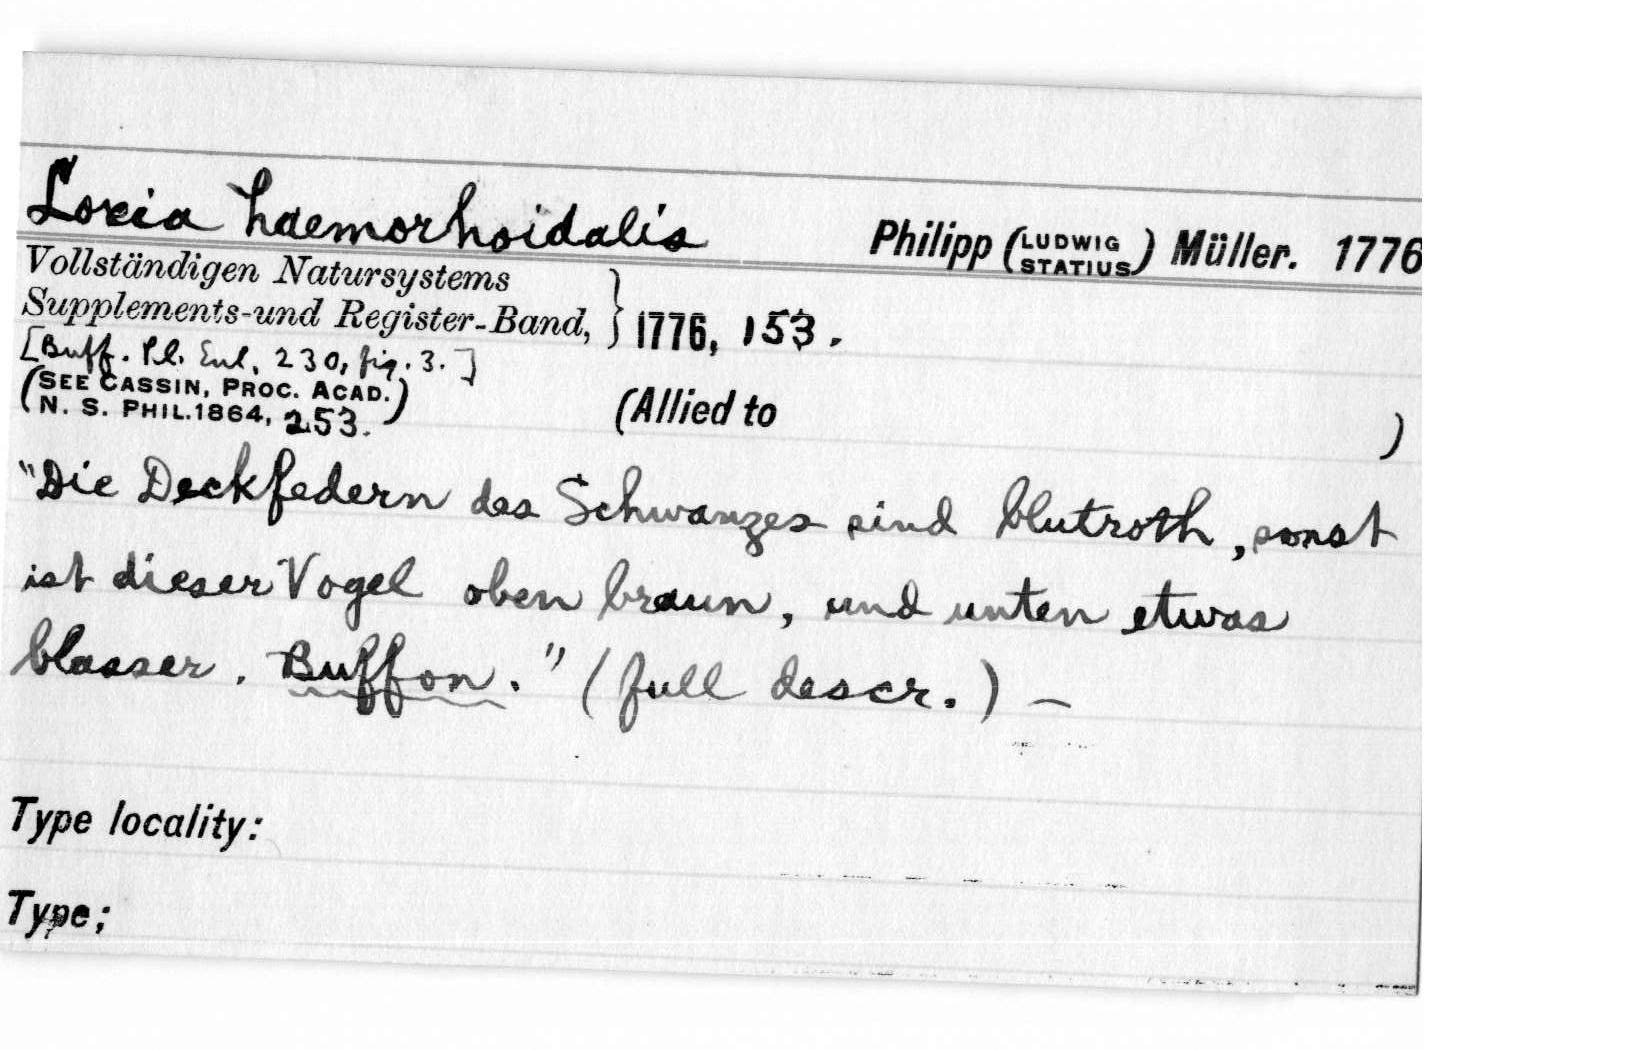 Loxia haemorhoidalis Philipp (LUDWIG STATIUS) Müller. 1776
Vollständigen Natursystems
Supplements-und Register-Band, } 1776, 153.
[Buff. Pl. Enl, 230, fig. 3.]
(SEE CASSIN, PROC. ACAD.
N. S. PHIL. 1864, 253.) (Allied to )
"Die Deckfedern des Schwanzes sind blutroth, sonst
ist dieser Vogel oben braun, und unten etwas
blasser. Buffon." (full descr.) —
Type locality:
Type;